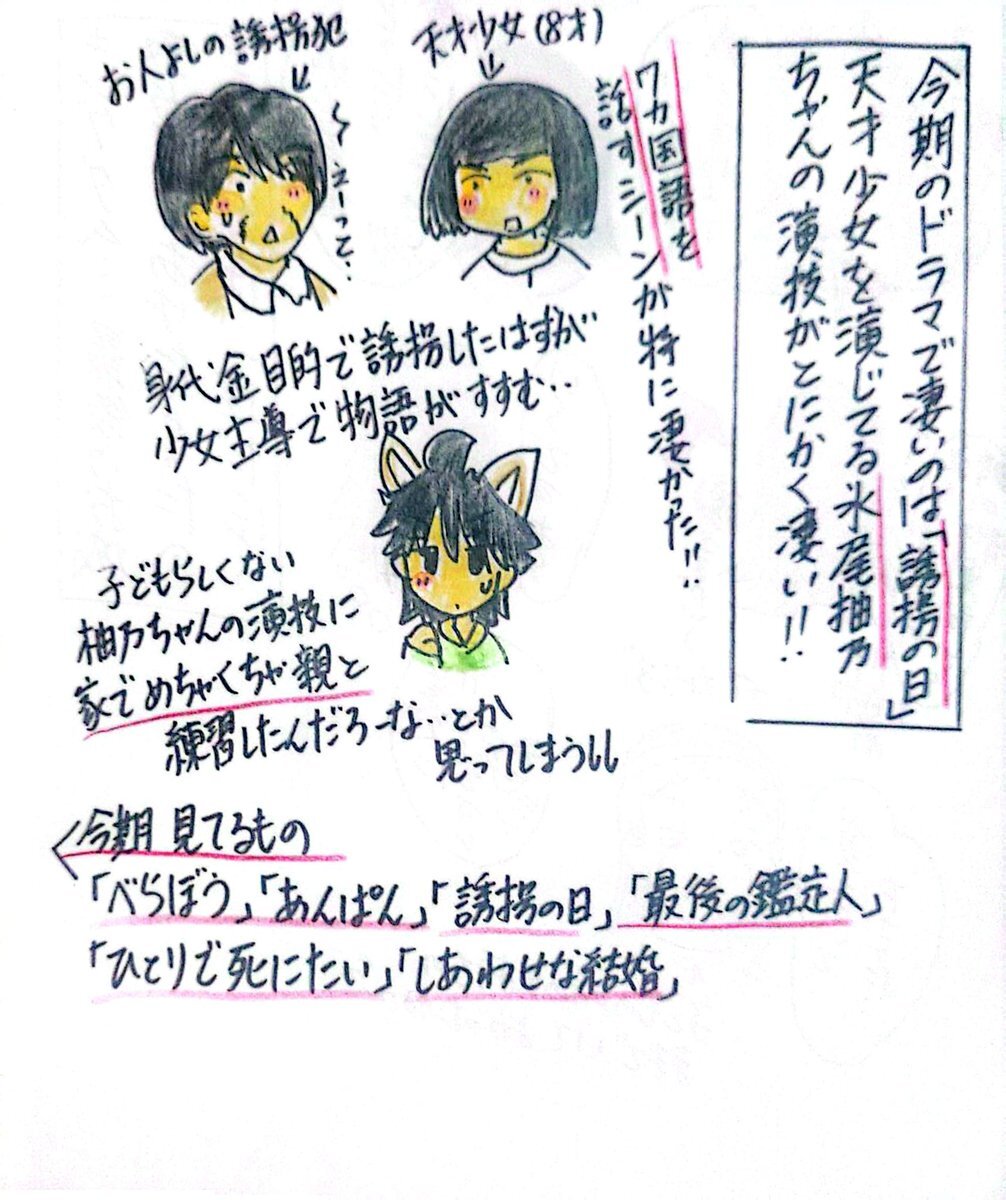 今期のドラマで凄いのは「誘拐の日」
天才少女を演じてる永尾柚乃
ちゃんの演技がとにかく凄い!!
天才少女(8才)
お人よしの誘拐犯
えーって‥
7カ国語を
話すシーンが特に凄かった!!
身代金目的で誘拐したはずが
少女主導で物語がすすむ‥
子どもらしくない
柚乃ちゃんの演技に
家でめちゃくちゃ親と
練習したんだろーな‥とか
思ってしまうしし
今期見てるもの
「べらぼう」「あんぱん」「誘拐の日」「最後の鑑定人」
「ひとりで死にたい」「しあわせな結婚」